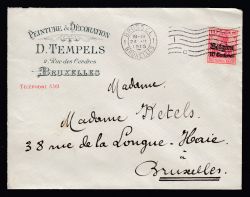 PEINTURE & DÉCORATION
D. TEMPELS
2 Rue des Cendres
BRUXELLES
TÉLÉPHONE
BRUXELLES
Belgien
Madame
Madame Ketels.
38 rue de la Longue-Haie
à
Bruxelles.